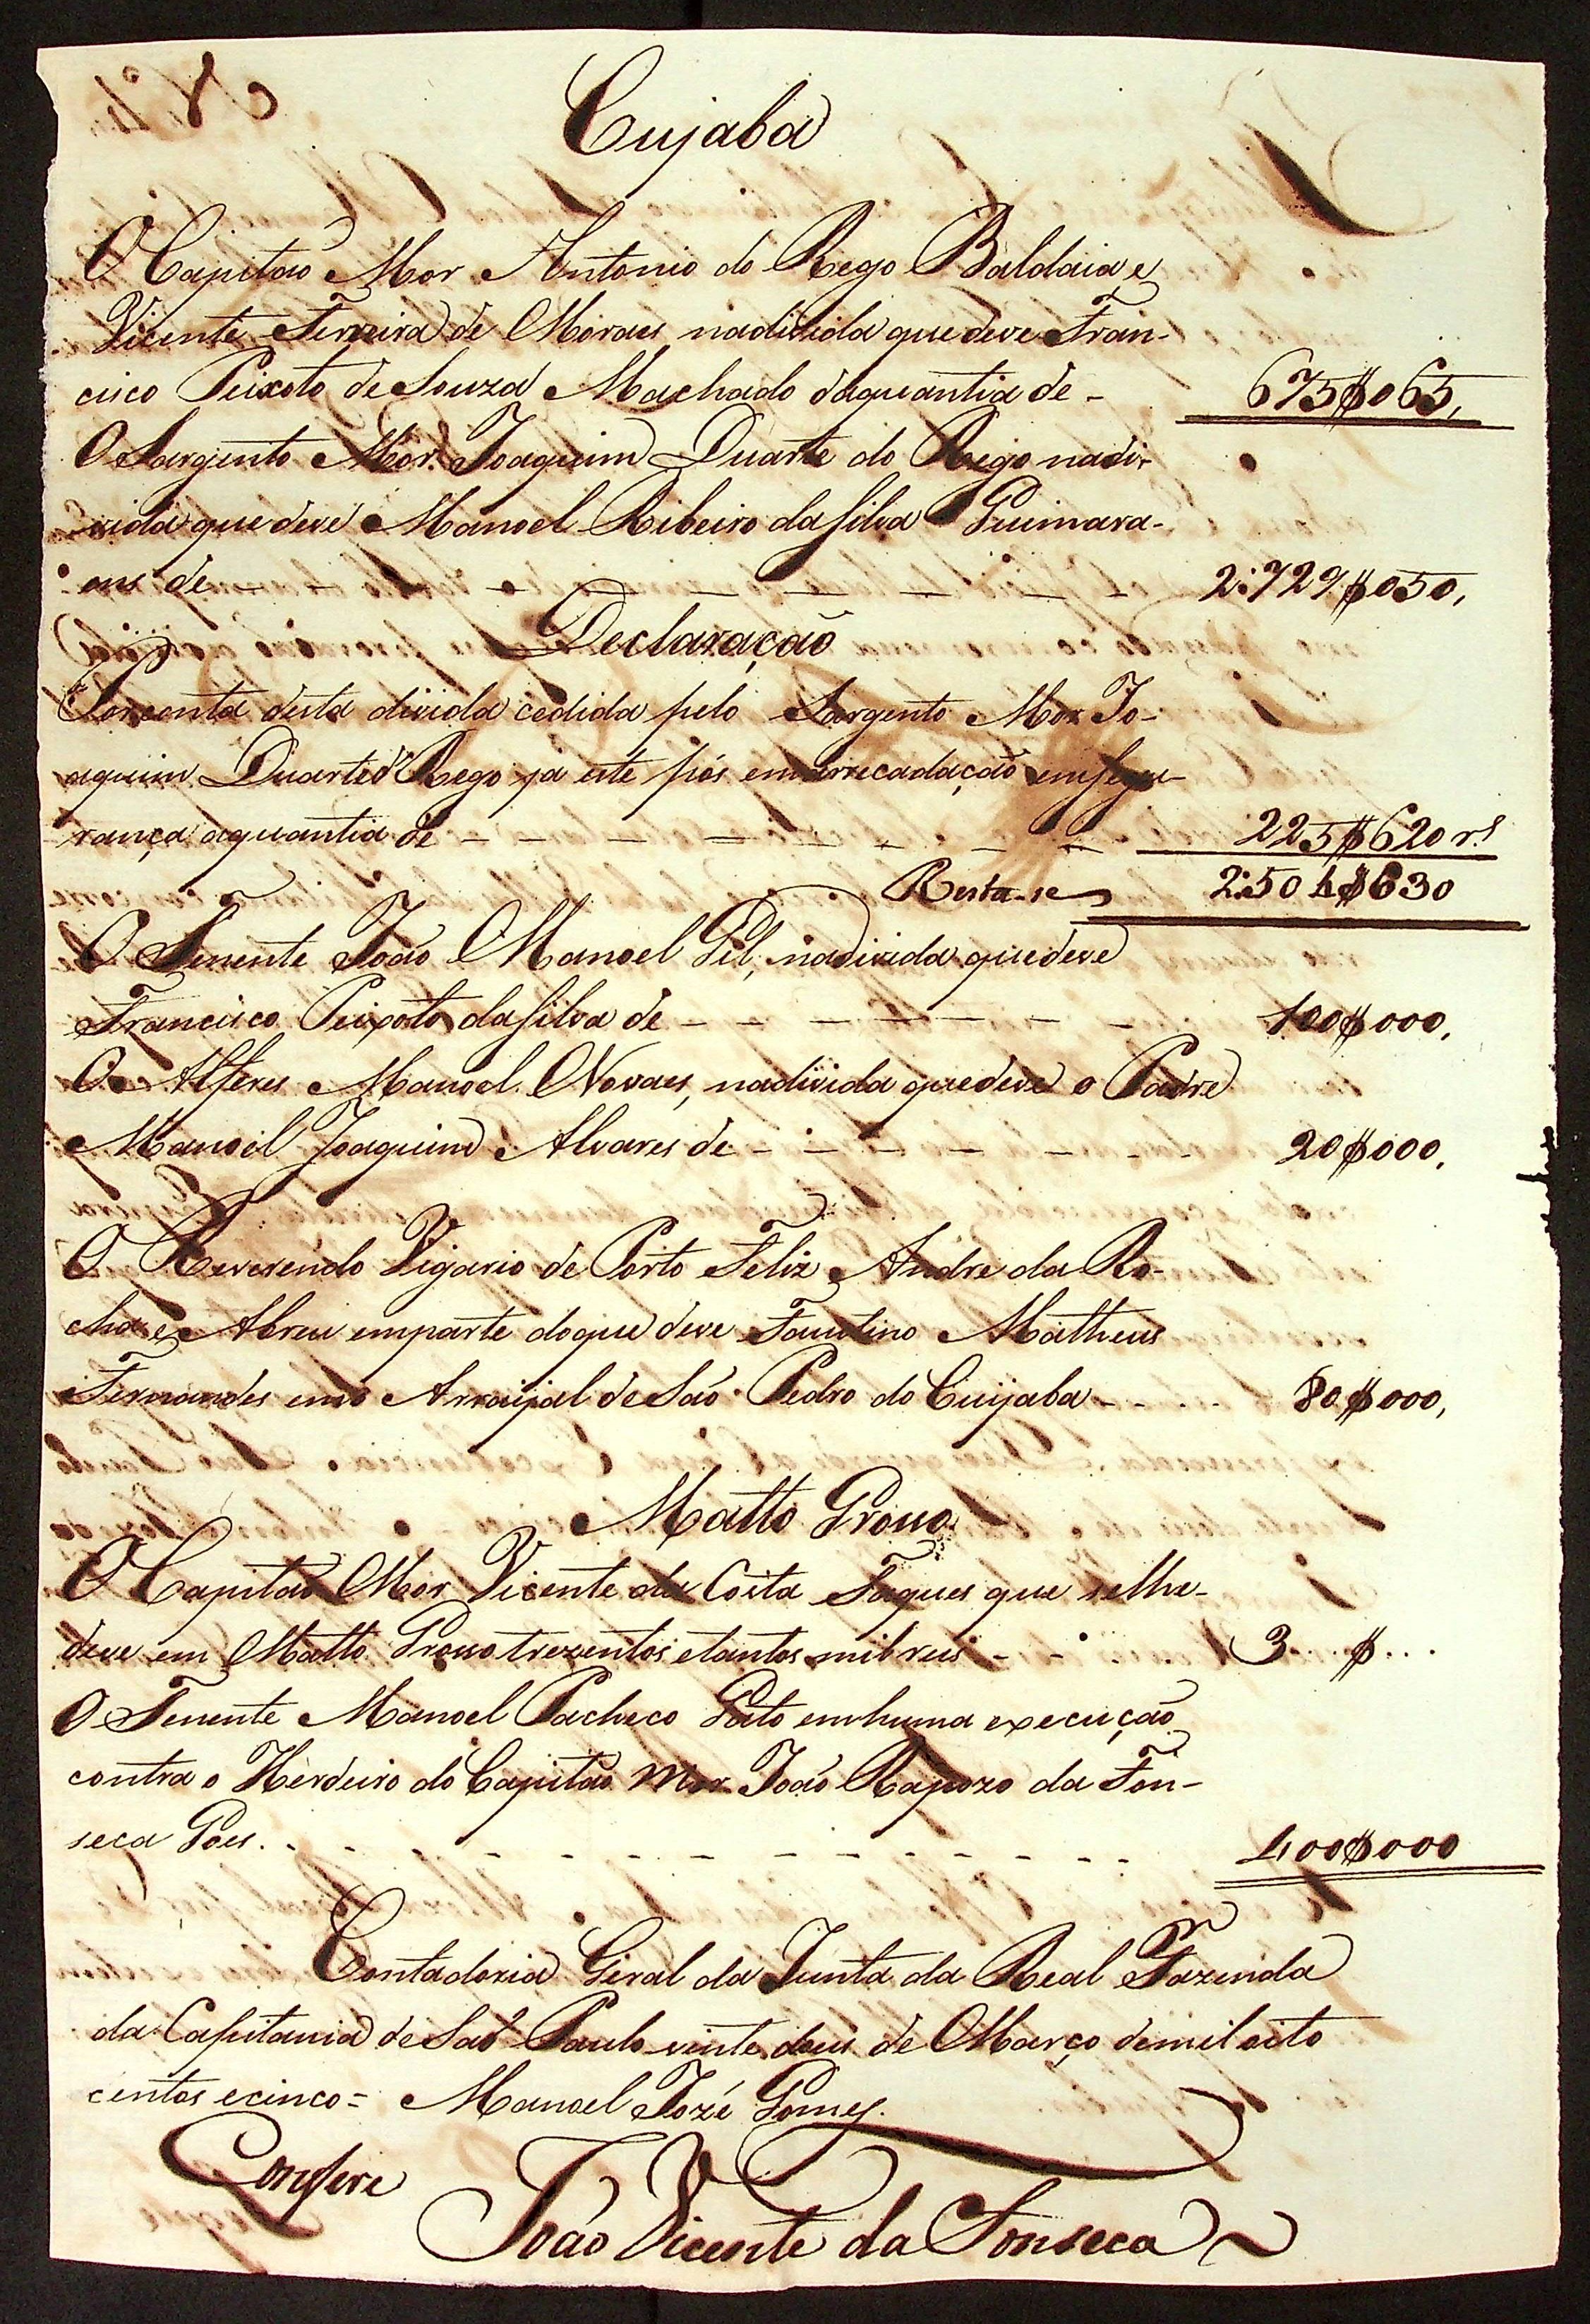 Cujaba
O Capitaõ Mor Antonio do Rego Baldaia e
Vicente Ferreira de Moraes nadivida que deve Fran-
cisco Peixoto de Souza Machado daquantia de - 675$065,
O Sargento Mor Joaquim Duarte do Rego nadi-
vida que deve Manoel Ribeiro da Silva Guimara-
ens de - - - - - - 2:729$050,
Declaração
Por conta desta divida cedida pelo Sargento Mor Jo-
aquim Duarte do Rego ja este pós em arrecadação em segu-
rança aquantia de - - - - - - 225$620 rs
Resta-se 2:504$630
O Tenente João Manoel Gil, nadivida que deve
Francisco Peixoto da Silva de - - - - - - 100$000,
O Alferes Manoel Novaes, nadivida que deve o Padre
Manoel Joaquim Alvares de - - - - - - 20$000,
O Reverendo Vigario de Porto Feliz Andre da Ro-
cha e Abreu emparte do que deve Faustino Matheus
Fernandes em o Arraijal de Saõ Pedro do Cuijaba - - - - 80$000,
Matto Grosso
O Capitaõ Mor Vicente da Costa Taques que selhe-
deve em Matto Grosso trezentos etantos mil reis - - - 3...$...
O Tenente Manoel Pacheco Gato emhuma execução
contra o Herdeiro do Capitaõ Mor João Rapozo da Fon-
seca Goes. - - - - - - 400$000
Contadoria Geral da Junta da Real Fazenda
da Capitania de Saõ Paulo vinte dous de Março demil oito
centos ecinco = Manoel Jozé Gomes.
Confere
João Vicente da Fonseca